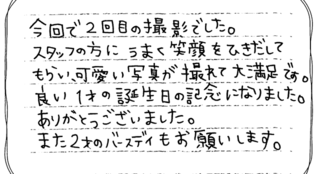 今回で2回目の撮影でした。
スタッフの方にうまく笑顔をひきだして
もらい、可愛い写真が撮れて大満足です。
良い1才の誕生日の記念になりました。
ありがとうございました。
また2才のバースデイもお願いします。